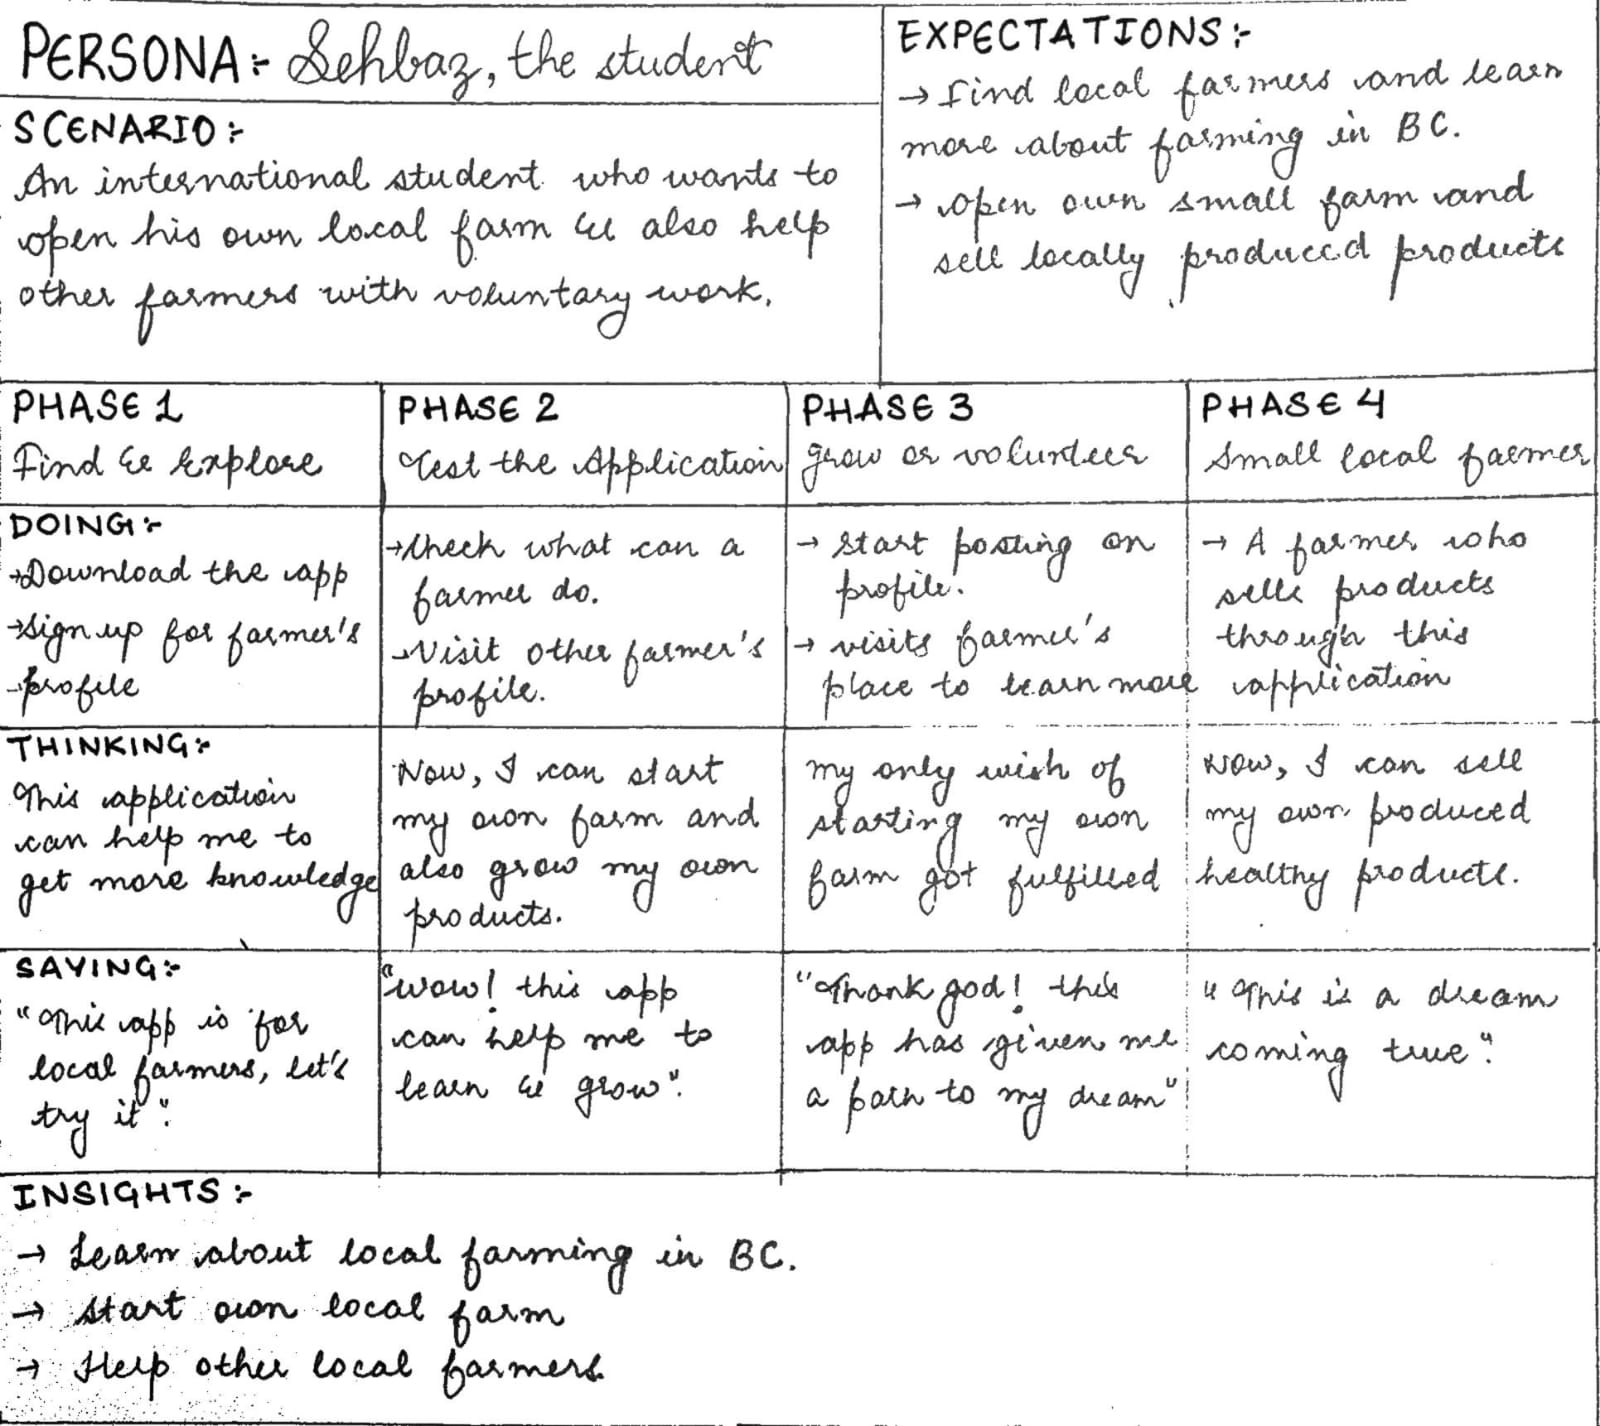 PERSONA:- Sehbaz, the student
SCENARIO:-
An international student who wants to
open his own local farm & also help
other farmers with voluntary work.
EXPECTATIONS:-
→ Find local farmers and learn
more about farming in BC.
→ open own small farm and
sell locally produced products
PHASE 1
Find & Explore
PHASE 2
Test the Application
PHASE 3
grow or volunteer
PHASE 4
Small local farmer
DOING:-
→Download the app
→Sign up for farmer's
→profile
→Check what can a
farmer do.
→Visit other farmer's
profile.
→ Start posting on
profile.
→ visits farmer's
place to learn more
→ A farmer who
sells products
through this
application
THINKING:-
This application
can help me to
get more knowledge
Now, I can start
my own farm and
also grow my own
products.
my only wish of
starting my own
farm got fulfilled
Now, I can sell
my own produced
healthy products.
SAYING:-
"This app is for
local farmers, let's
try it".
"Wow! this app
can help me to
learn & grow".
"Thank god! this
app has given me
a path to my dream"
"This is a dream
coming true".
INSIGHTS:-
→ Learn about local farming in BC.
→ Start own local farm
→ Help other local farmers.